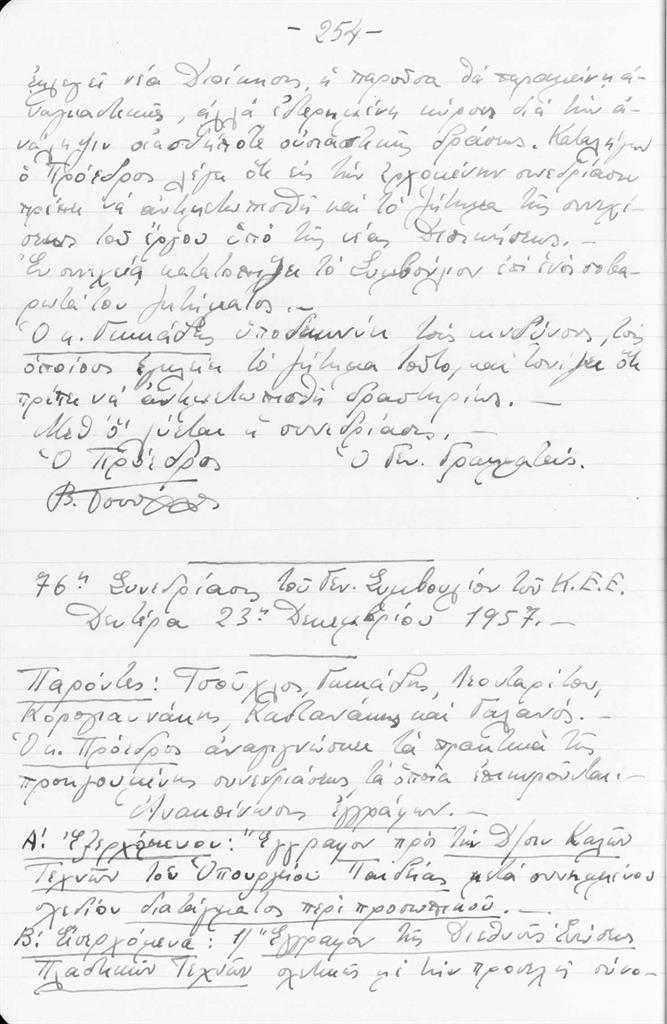 - 254 -
ἐκλεγεῖ νέα Διοίκησις, ἡ παροῦσα θὰ παραμείνῃ ἀ-
ναγκαστικῶς, ἀλλὰ ἐστερημένη κύρους διὰ τὴν ἀ-
νάληψιν οἱασδήποτε οὐσιαστικῆς δράσεως. Καταλήγων
ὁ Πρόεδρος λέγει ὅτι εἰς τὴν ἐρχομένην συνεδρίασιν
πρέπει νὰ ἀντιμετωπισθῇ καὶ τὸ ζήτημα τῆς συνεχί-
σεως τοῦ ἔργου ὑπὸ τῆς νέας Διοικήσεως. -
Ἐν συνεχείᾳ κατατοπίζει τὸ Συμβούλιον ἐπὶ ἑνὸς σοβα-
ρωτάτου ζητήματος. -
Ὁ κ. Γκικάδης ὑποδεικνύει τοὺς κινδύνους, τοὺς
ὁποίους ἐγκλείει τὸ ζήτημα τοῦτο, καὶ τονίζει ὅτι
πρέπει νὰ ἀντιμετωπισθῇ δραστηρίως. -
Μεθ' ὃ λύεται ἡ συνεδρίασις. -
Ὁ Πρόεδρος Ὁ Γεν. Γραμματεύς.
76η Συνεδρίασις τοῦ Γεν. Συμβουλίου τοῦ Κ.Ε.Ε.
Δευτέρα 23η Δεκεμβρίου 1957. -
Παρόντες: Τσοῦχλος, Γκικάδης, Λεονταρίτου,
Κορογιαννάκης, Καστανάκης καὶ Γαλανός. -
Ὁ κ. Πρόεδρος ἀναγιγνώσκει τὰ πρακτικὰ τῆς
προηγουμένης συνεδριάσεως, τὰ ὁποῖα ἐπικυροῦνται. -
Ἀνακοίνωσις Ἐγγράφων. -
Α: Ἐξερχόμενον: Ἔγγραφον πρὸς τὴν Δ/σιν Καλῶν
Τεχνῶν τοῦ Ὑπουργείου Παιδείας μετὰ συνημμένου
σχεδίου διατάγματος περὶ προσωπικοῦ. -
Β: Εἰσερχόμενα: 1/ Ἔγγραφον τῆς Διεθνοῦς Ἑνώσεως
Πλαστικῶν Τεχνῶν σχετικῶς μὲ τὴν προσεχῆ σύνο-